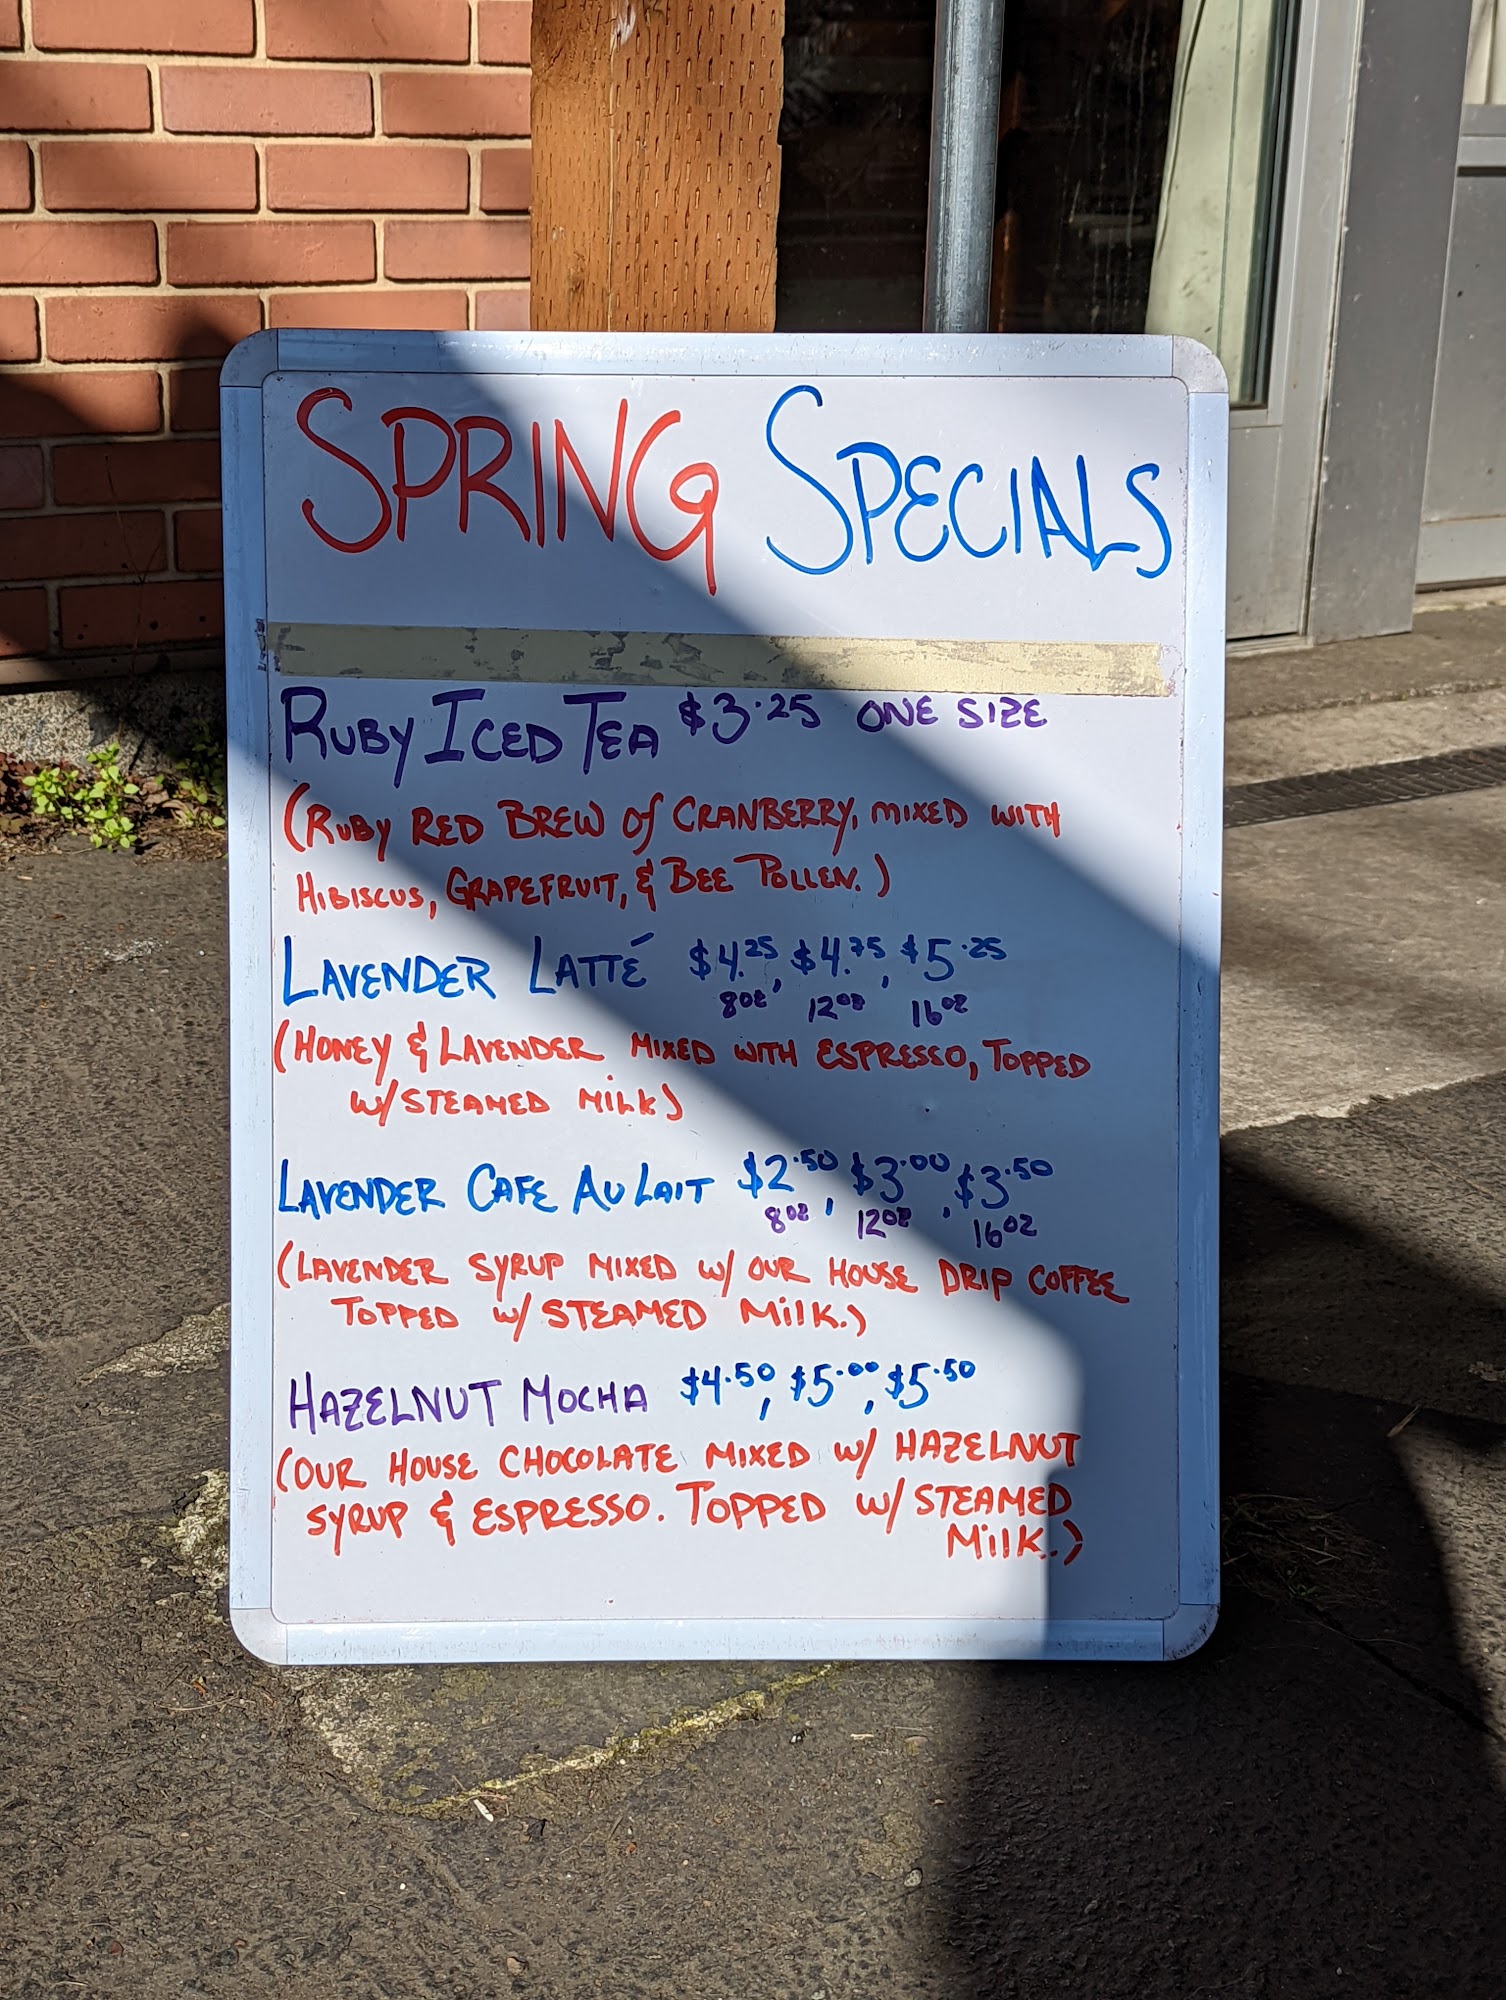 SPRING SPECIALS
RUBY ICED TEA $3.25 ONE SIZE
(RUBY RED BREW of CRANBERRY, MIXED WITH
HIBISCUS, GRAPEFRUIT, & BEE POLLEN.)
LAVENDER LATTÉ $4.25, $4.75, $5.25
8oz 12oz 16oz
(HONEY & LAVENDER MIXED WITH ESPRESSO, TOPPED
W/STEAMED MILK)
LAVENDER CAFE AU LAIT $2.50, $3.00, $3.50
8oz 12oz 16oz
(LAVENDER SYRUP MIXED W/ OUR HOUSE DRIP COFFEE
TOPPED W/ STEAMED MILK.)
HAZELNUT MOCHA $4.50, $5.00, $5.50
(OUR HOUSE CHOCOLATE MIXED W/ HAZELNUT
SYRUP & ESPRESSO. TOPPED W/ STEAMED
MILK.)